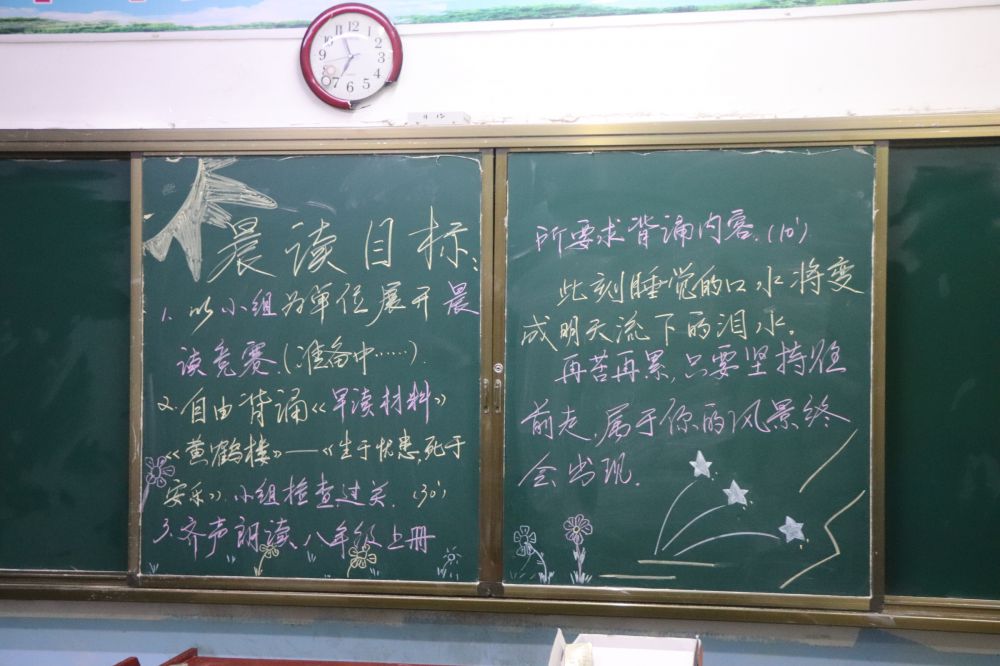 晨读目标:
1. 以小组为单位展开晨
读竞赛.(准备中……).
2. 自由背诵《早读材料》
《黄鹤楼》——《生于忧患,死于
安乐》.小组检查过关.(30')
3.齐声朗读八年级上册
所要求背诵内容.(10')
此刻睡觉的口水将变
成明天流下的泪水。
再苦再累,只要坚持往
前走,属于你的风景终
会出现.
12
1
2
3
4
5
6
7
8
9
10
11